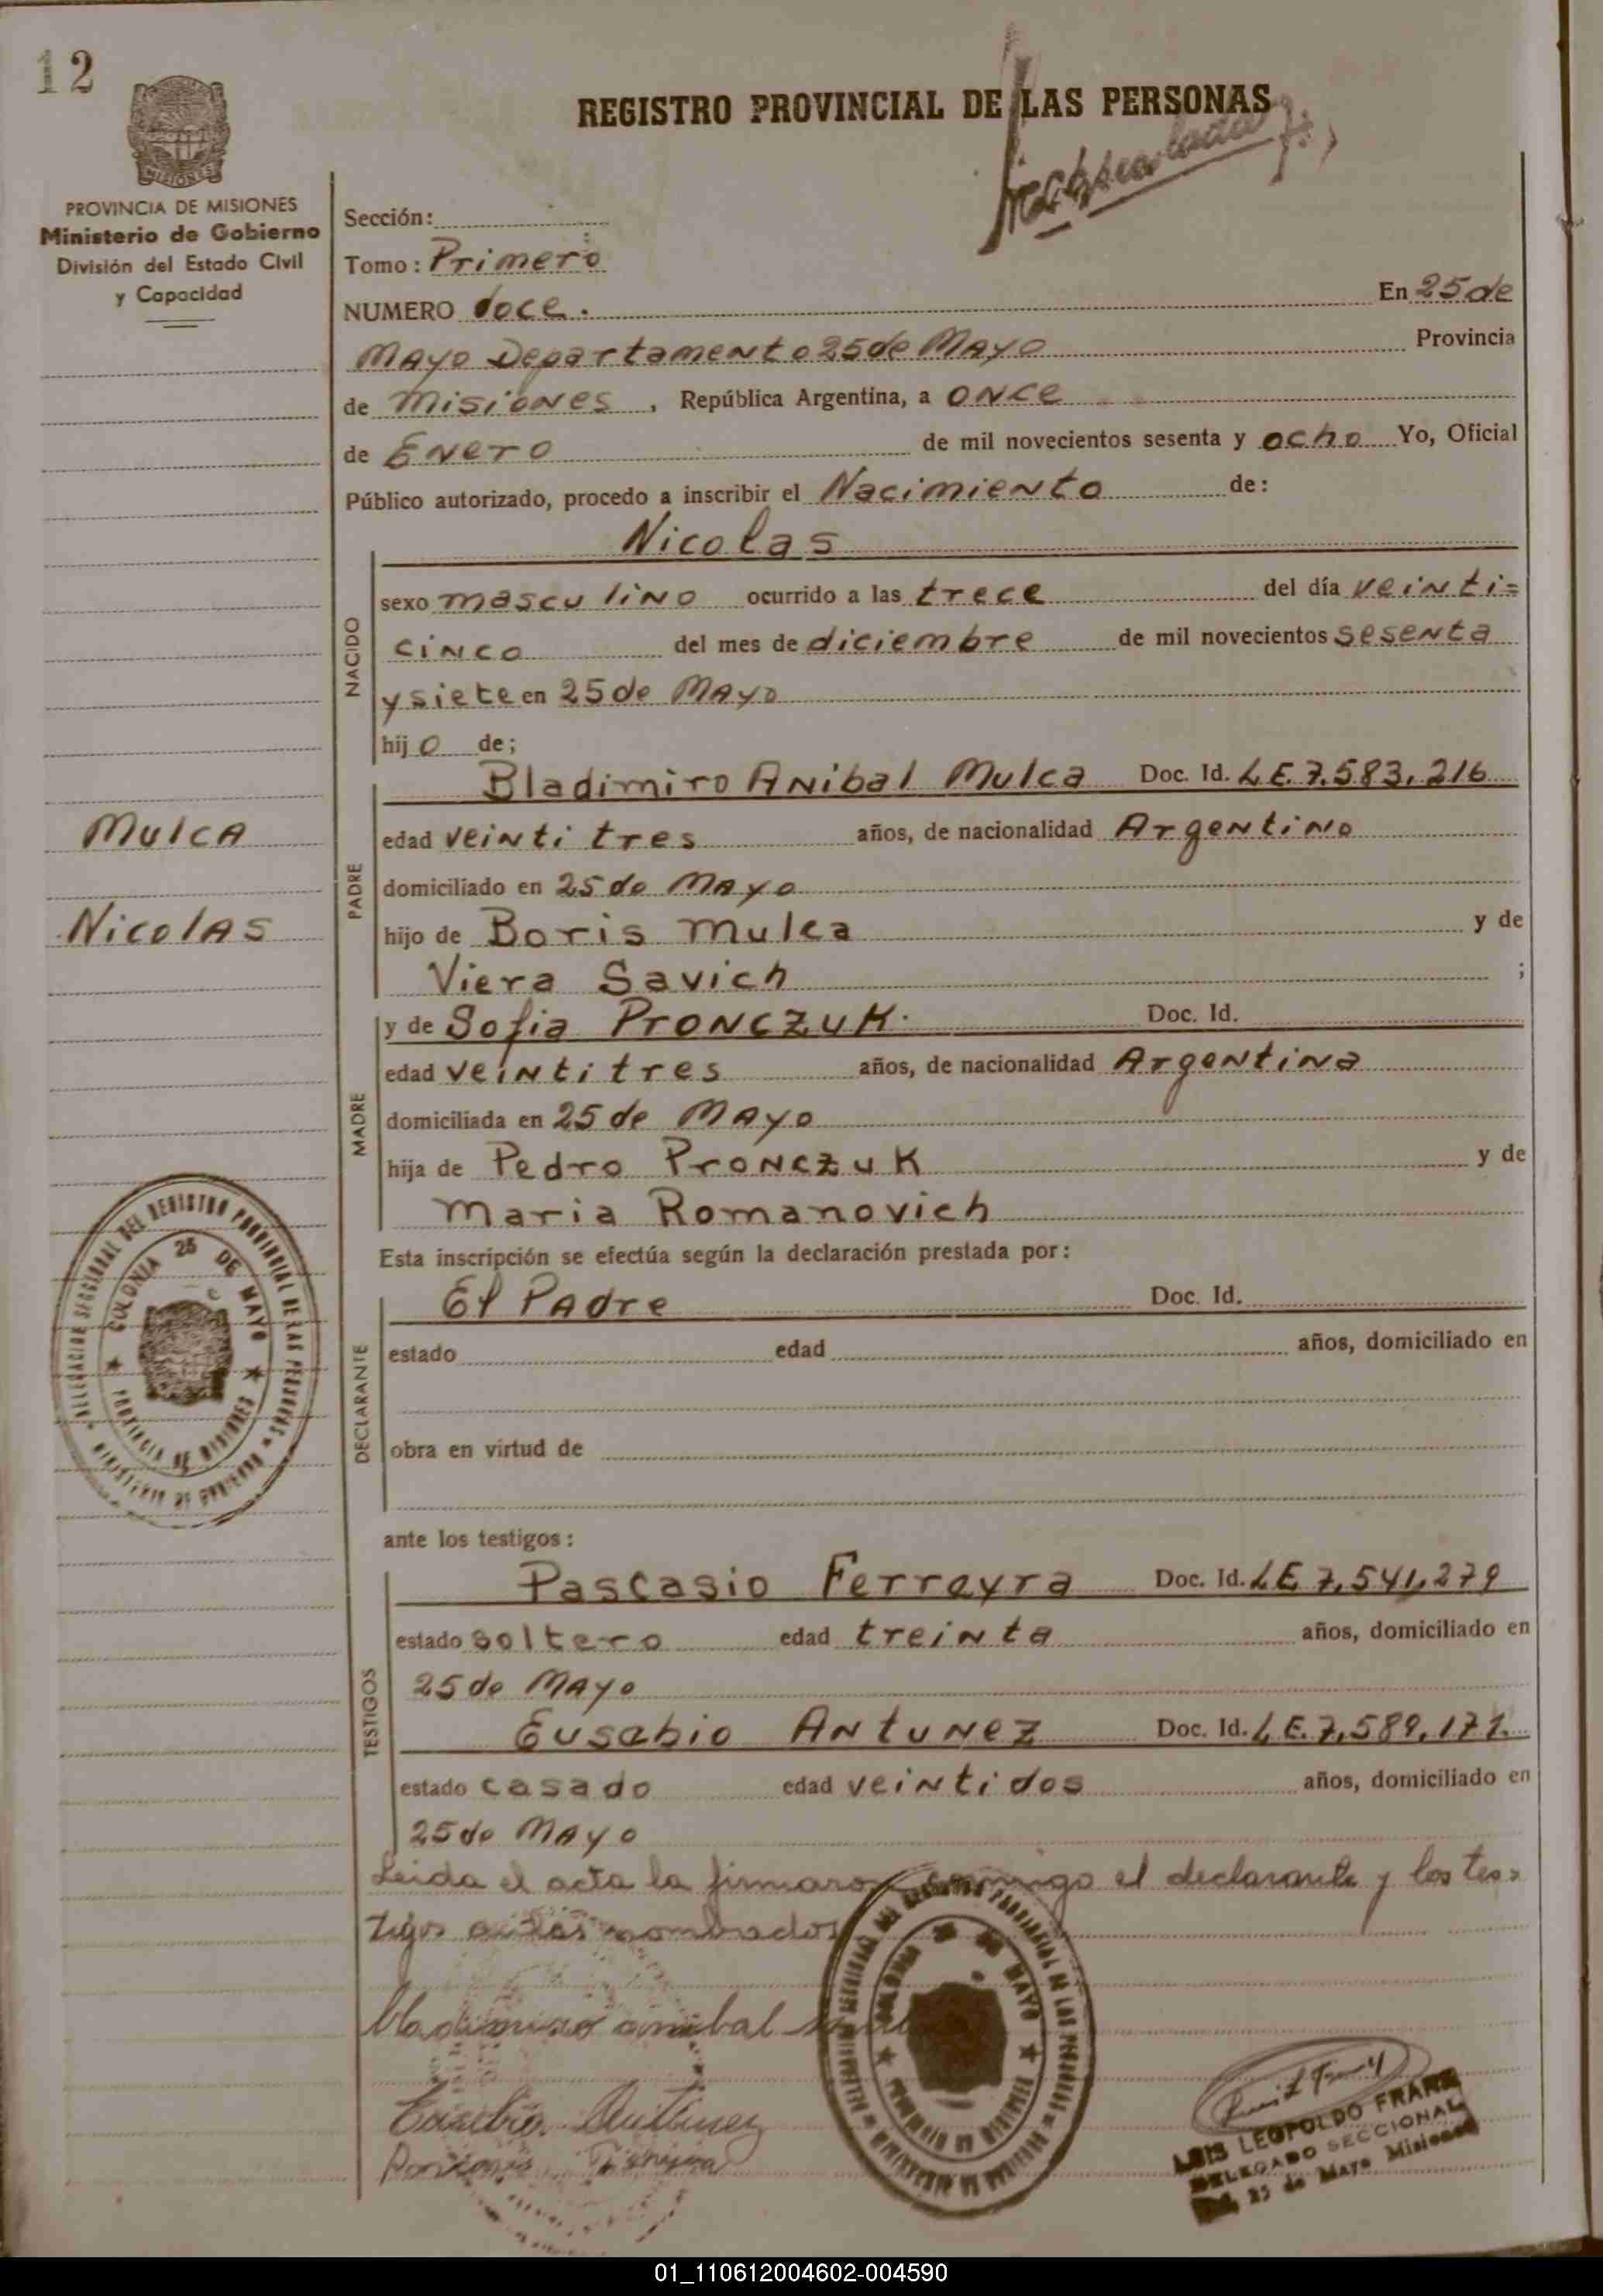 12
REGISTRO PROVINCIAL DE LAS PERSONAS
MISIONES
PROVINCIA DE MISIONES
Ministerio de Gobierno
División del Estado Civil
y Capacidad
Sección:
Tomo: Primero
NUMERO doce. En 25 de
Mayo Departamento 25 de Mayo Provincia
de Misiones, República Argentina, a once
de Enero de mil novecientos sesenta y ocho Yo, Oficial
Público autorizado, procedo a inscribir el Nacimiento de:
Nicolas
NACIDO
sexo masculino ocurrido a las trece del día veinti=
cinco del mes de diciembre de mil novecientos sesenta
y siete en 25 de Mayo
hijo de;
PADRE
Bladimiro Anibal Mulca Doc. Id. L.E. 7.583.216
edad veinti tres años, de nacionalidad Argentino
domiciliado en 25 de Mayo
hijo de Boris Mulca y de
Viera Savich ;
Mulca
Nicolas
MADRE
y de Sofia Pronczuk. Doc. Id.
edad veintitres años, de nacionalidad Argentina
domiciliada en 25 de Mayo
hija de Pedro Pronczuk y de
Maria Romanovich
Esta inscripción se efectúa según la declaración prestada por:
DECLARANTE
El Padre Doc. Id.
estado edad años, domiciliado en
obra en virtud de
DELEGACION SECCIONAL DEL REGISTRO PROVINCIAL DE LAS PERSONAS
MINISTERIO DE GOBIERNO
COLONIA 25 DE MAYO
PROVINCIA DE MISIONES
ante los testigos:
TESTIGOS
Pascasio Ferreyra Doc. Id. L.E. 7.541.279
estado soltero edad treinta años, domiciliado en
25 de Mayo
Eusebio Antunez Doc. Id. L.E. 7.589.171.
estado casado edad veinti dos años, domiciliado en
25 de Mayo
Leida el acta la firmaron conmigo el declarante y los tes=
tigos nombrados
Bladimiro anibal
Eusebio Antunez
LUIS LEOPOLDO FRANK
DELEGADO SECCIONAL
25 de Mayo Misiones
01_110612004602-004590